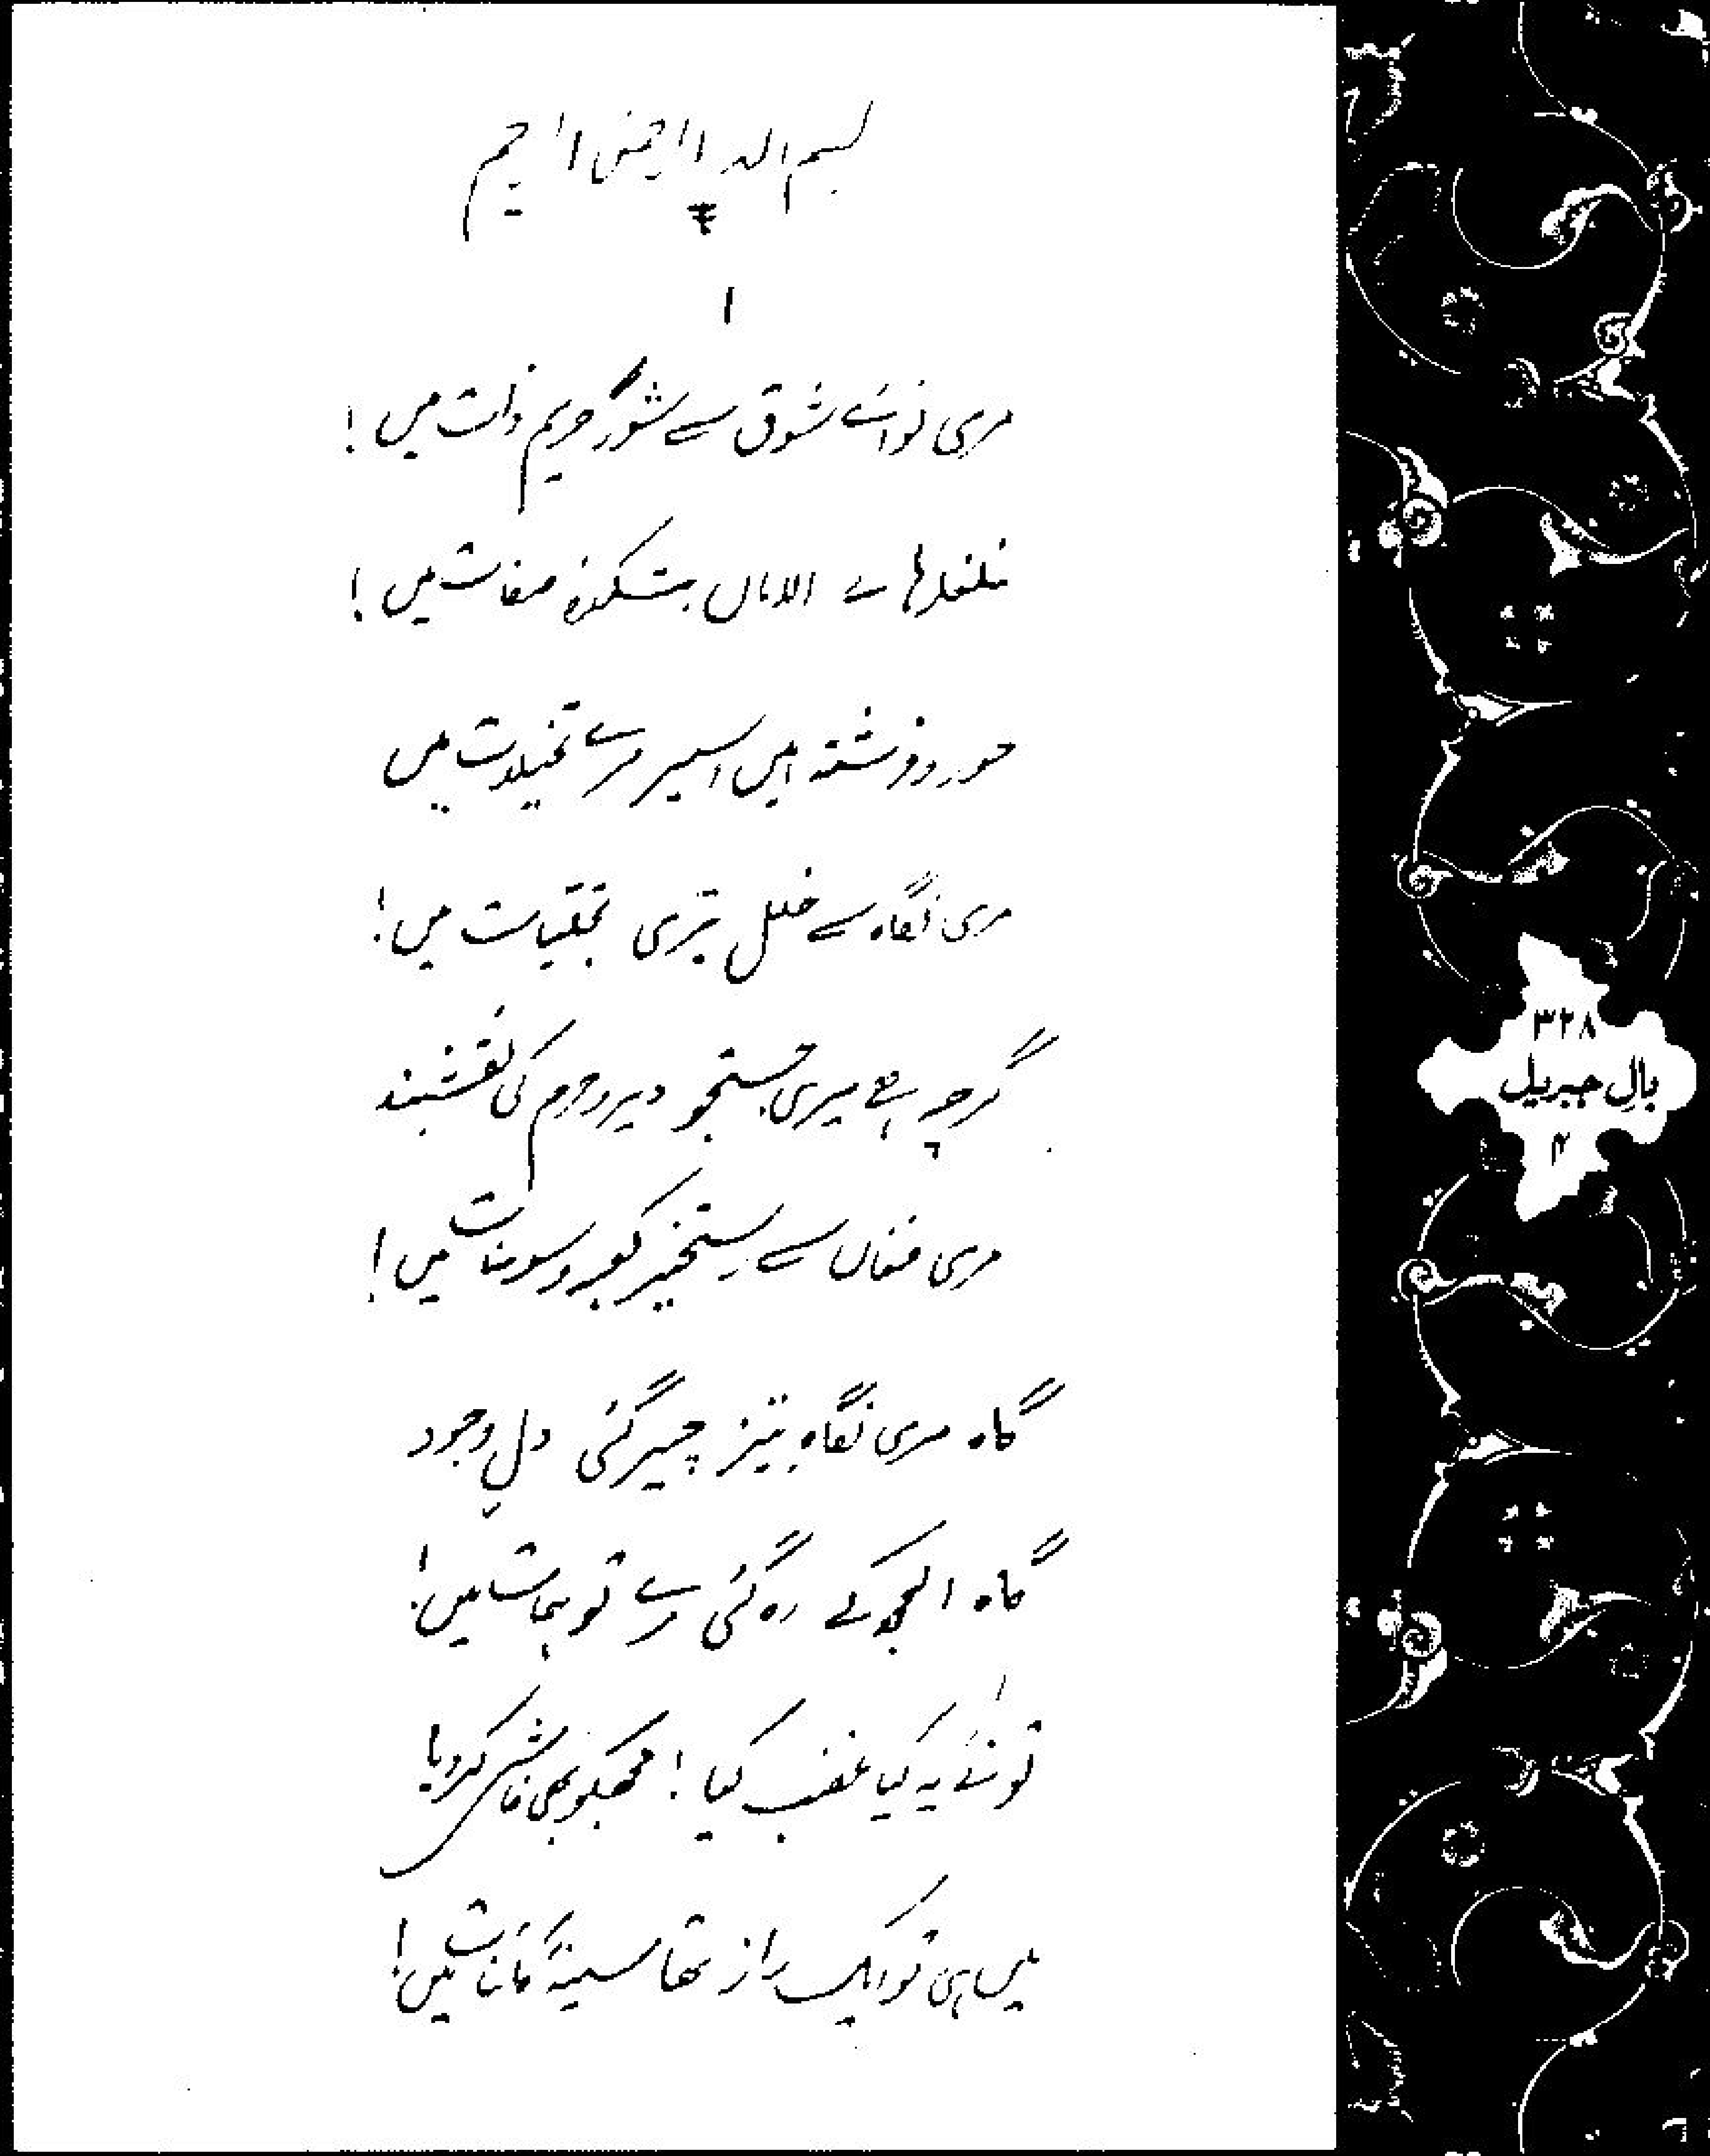 بسم اللہ الرحمن الرحیم
۱
مری نوائے شوق سے شور حریم ذات میں!
غلغلہ ہائے الاماں بتکدۂ صفات میں!
حور و فرشتہ ہیں اسیر مرے تخیلات میں
مری نگاہ سے خلل تیری تجلیات میں!
گرچہ ہے میری جستجو دیر و حرم کی نقشبند
مری فغاں سے رستخیز کعبہ و سومنات میں!
گاہ مری نگاہِ تیز چیر گئی دلِ وجود
گاہ الجھ کے رہ گئی مرے توہمات میں!
تو نے یہ کیا غضب کیا! مجھکو بھی فاش کردیا
میں ہی تو ایک راز تھا سینۂ کائنات میں!
۳۲۸
بالِ جبریل
۴